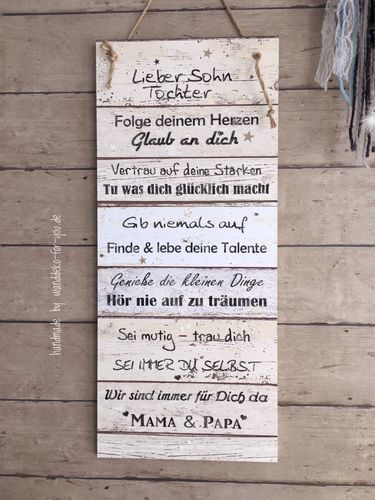 Lieber Sohn
Tochter
Folge deinem Herzen
Glaub an dich
Vertrau auf deine Stärken
Tu was dich glücklich macht
Gib niemals auf
Finde & lebe deine Talente
Genieße die kleinen Dinge
Hör nie auf zu träumen
Sei mutig – trau dich
SEI IMMER DU SELBST
Wir sind immer für Dich da
MAMA & PAPA
handmade by wanddeko-for-you.de